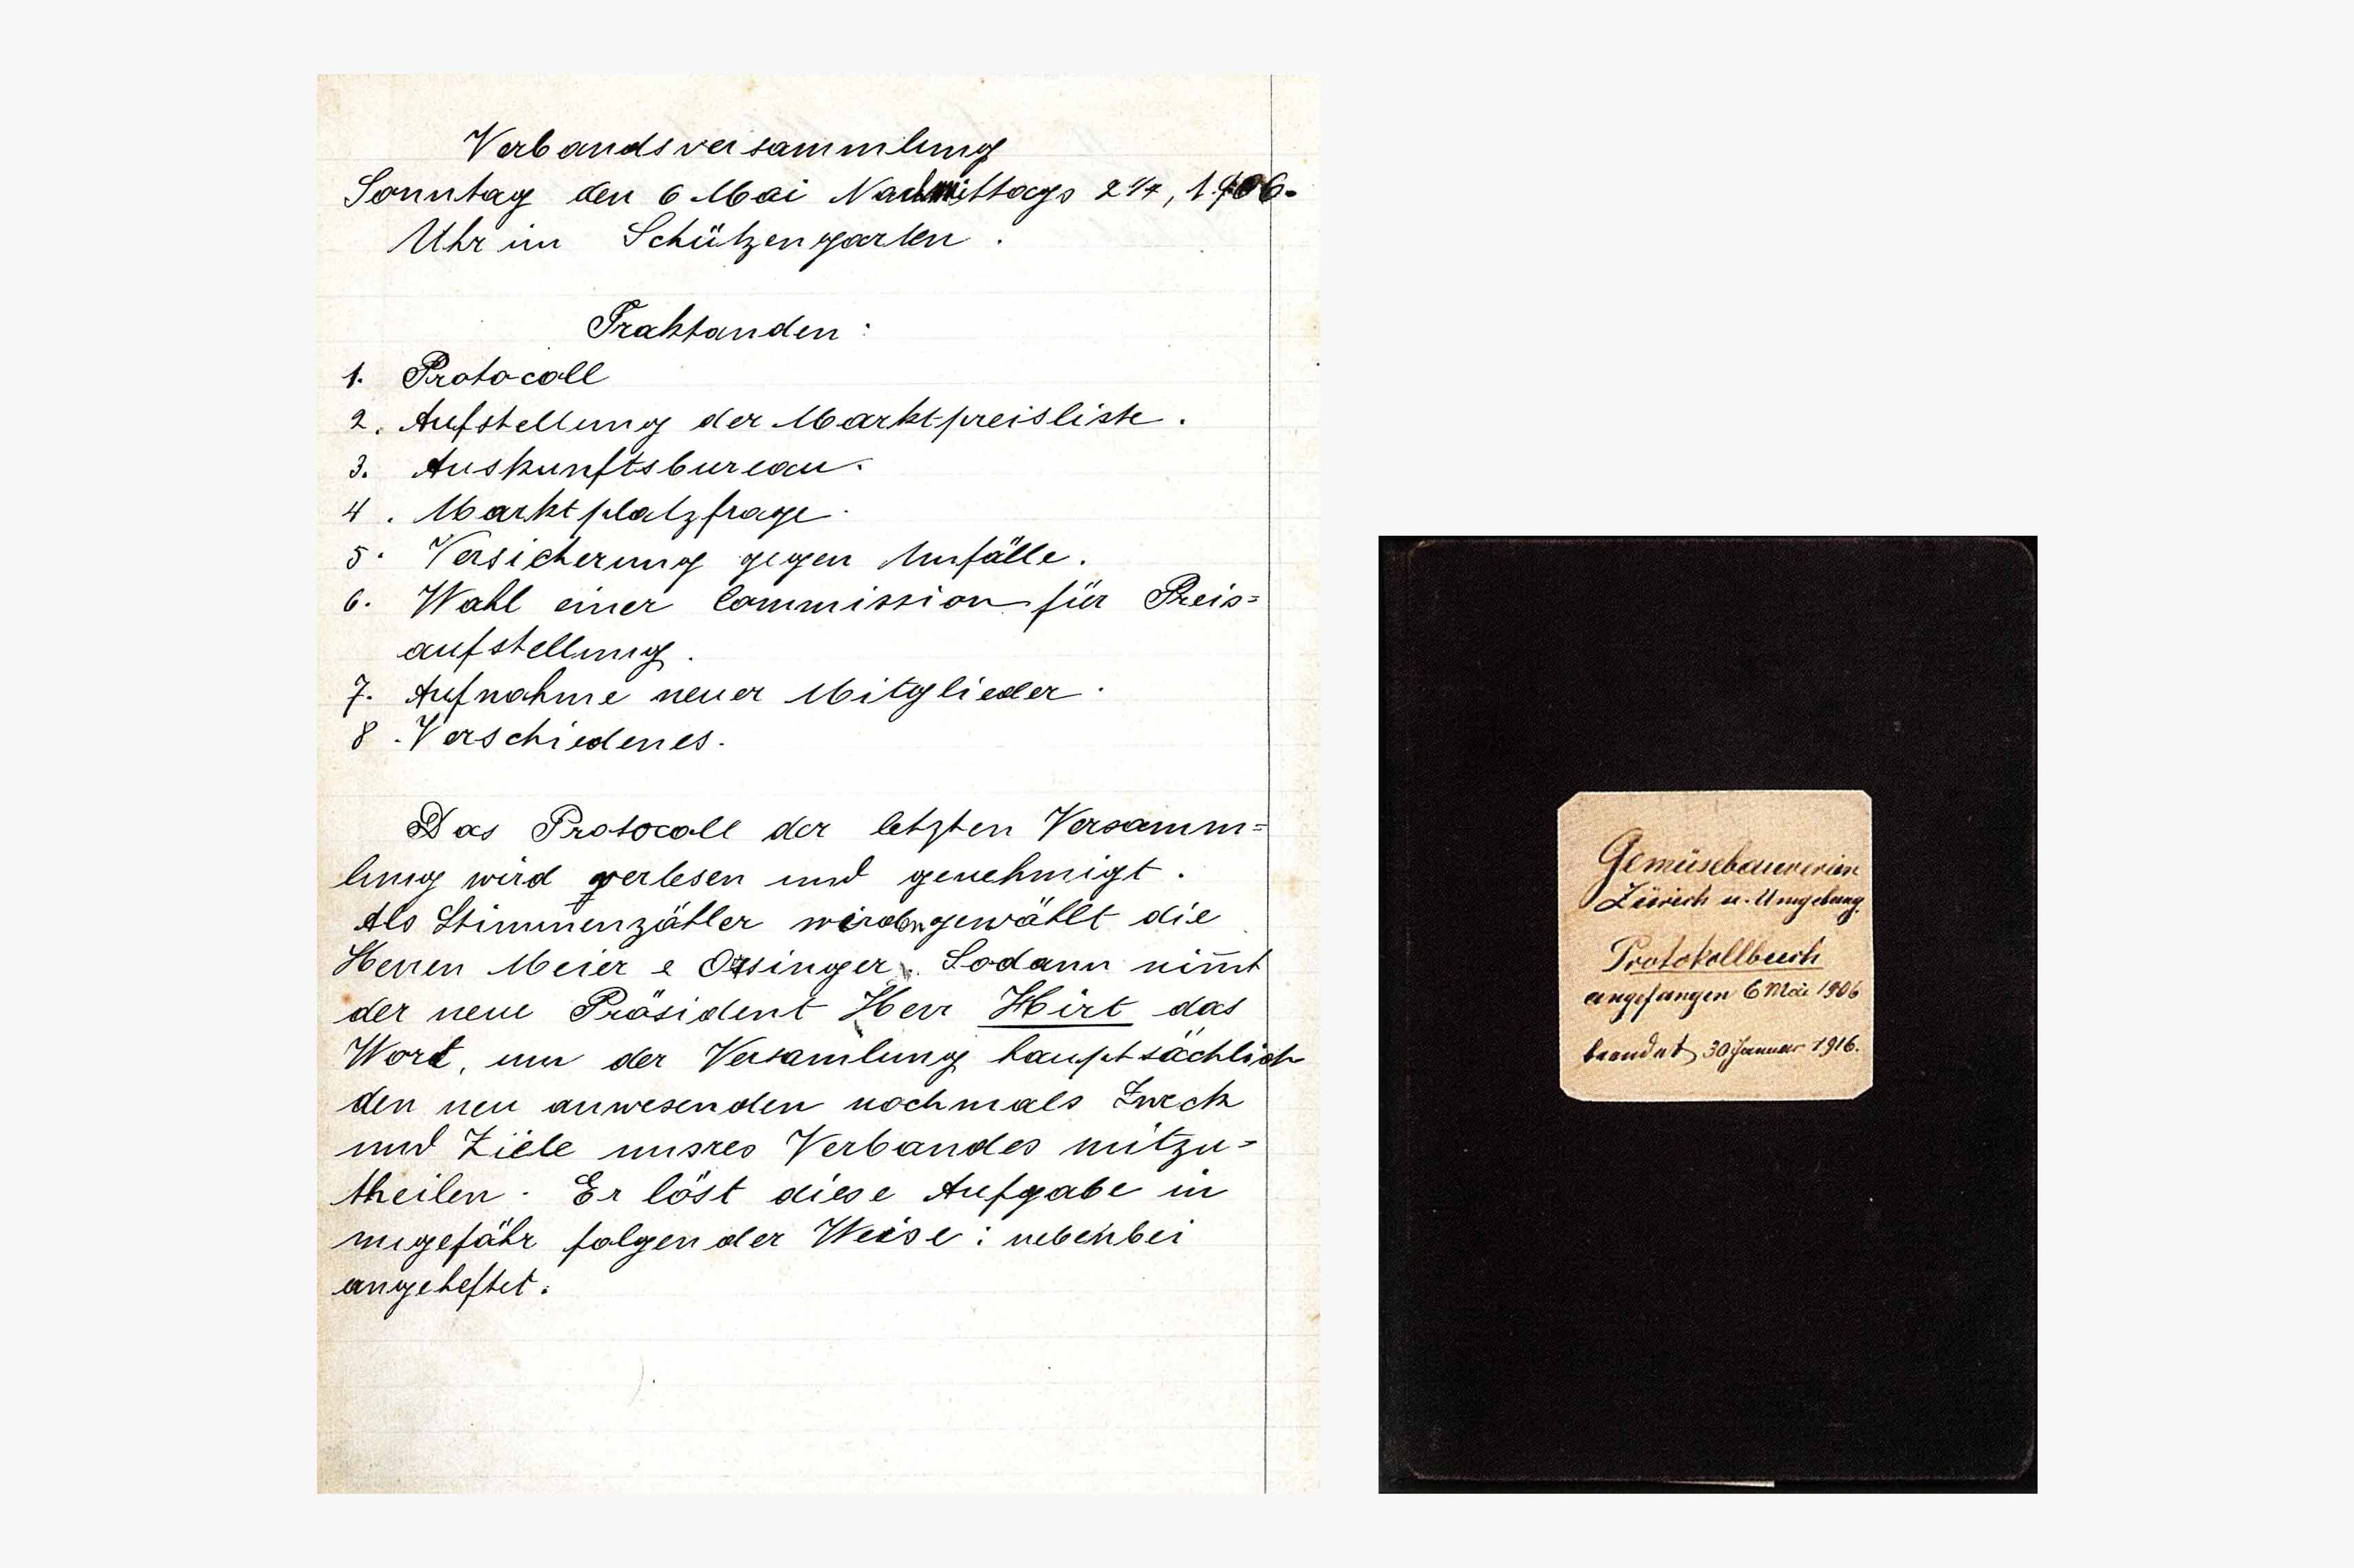 Verbandsversammlung
Sonntag den 6 Mai Nachmittags 2 1/4, 1906.
Uhr im Schützengarten.
Traktanden:
1. Protocoll
2. Aufstellung der Marktpreisliste.
3. Auskunftsbureau.
4. Marktplatzfrage.
5. Versicherung gegen Unfälle.
6. Wahl einer Commission für Preis=
aufstellung.
7. Aufnahme neuer Mitglieder.
8. Verschiedenes.
Das Protocoll der letzten Versamm=
lung wird verlesen und genehmigt.
Als Stimmenzähler werden gewählt die
Herren Meier e Ossinger. Sodann nim̄t
der neue Präsident Herr Hirt das
Wort, um der Versamlung hauptsächlich
den neu anwesenden nochmals Zweck
und Ziele unsres Verbandes mitzu=
theilen. Er löst diese Aufgabe in
ungefähr folgender Weise: nebenbei
angeheftet.
Gemüsebauverein
Zürich u. Umgebung.
Protokollbuch
angefangen 6 Mai 1906
beendet 30 Januar 1916.